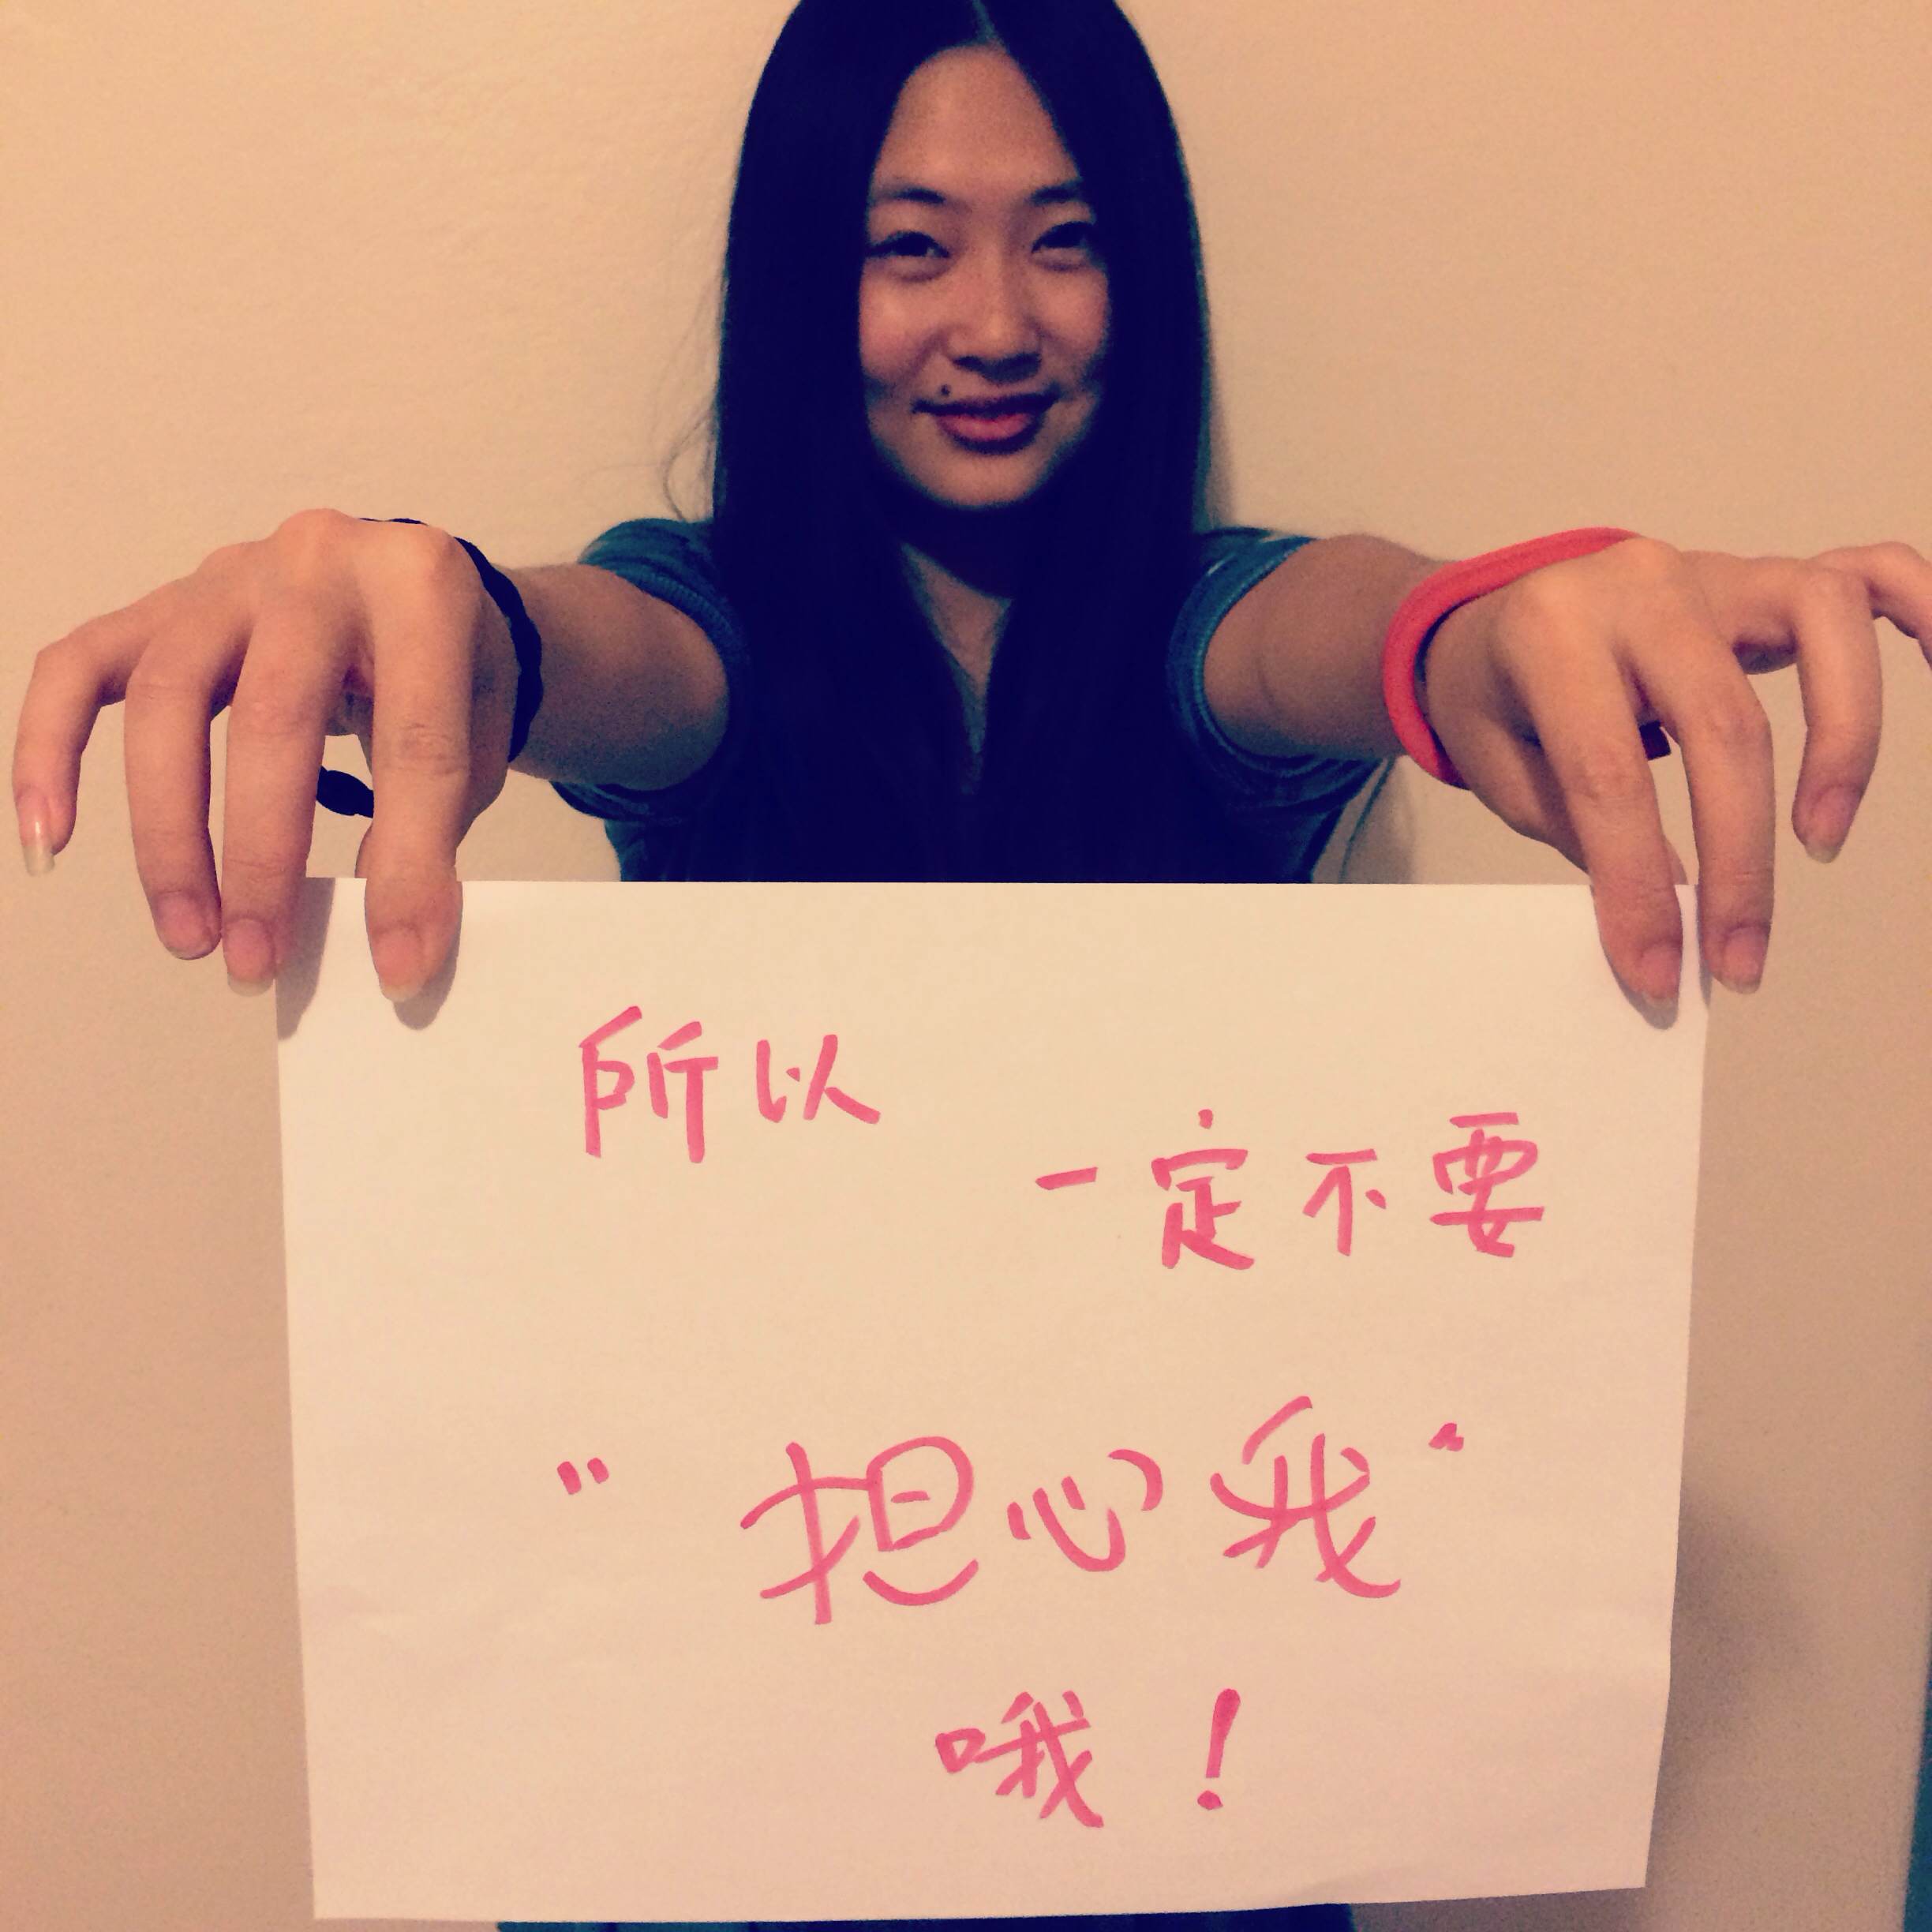 所以
一定不要
"担心我"
哦！